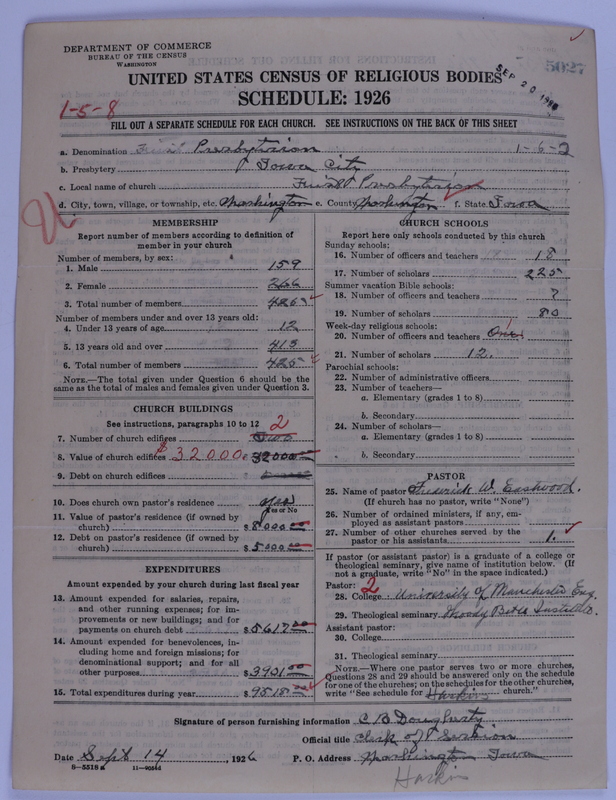 DEPARTMENT OF COMMERCE
BUREAU OF THE CENSUS
WASHINGTON
5027
SEP 20 1926
UNITED STATES CENSUS OF RELIGIOUS BODIES
SCHEDULE: 1926
1-5-8
FILL OUT A SEPARATE SCHEDULE FOR EACH CHURCH. SEE INSTRUCTIONS ON THE BACK OF THIS SHEET
a. Denomination First Presbyterian 1-6-2
b. Presbytery Iowa City
c. Local name of church First Presbyterian
d. City, town, village, or township, etc. Washington e. County Washington f. State Iowa
MEMBERSHIP
Report number of members according to definition of
member in your church
Number of members, by sex:
1. Male 159
2. Female 266
3. Total number of members 425
Number of members under and over 13 years old:
4. Under 13 years of age 12
5. 13 years old and over 413
6. Total number of members 425
NOTE.—The total given under Question 6 should be
the same as the total of males and females given under Question 3.
CHURCH BUILDINGS
See instructions, paragraphs 10 to 12
2
7. Number of church edifices Two
8. Value of church edifices $32000 32000
9. Debt on church edifices
10. Does church own pastor's residence Yes
Yes or No
11. Value of pastor's residence (if owned by
church) $8000.00
12. Debt on pastor's residence (if owned by
church) $5000.00
EXPENDITURES
Amount expended by your church during last fiscal year
13. Amount expended for salaries, repairs,
and other running expenses; for im-
provements or new buildings; and for
payments on church debt $5617.00
14. Amount expended for benevolences, in-
cluding home and foreign missions; for
denominational support; and for all
other purposes $3901.00
15. Total expenditures during year $9518.00
CHURCH SCHOOLS
Report here only schools conducted by this church
Sunday schools:
16. Number of officers and teachers 18
17. Number of scholars 225
Summer vacation Bible schools:
18. Number of officers and teachers 7
19. Number of scholars 80
Week-day religious schools:
20. Number of officers and teachers One
21. Number of scholars 12.
Parochial schools:
22. Number of administrative officers
23. Number of teachers—
a. Elementary (grades 1 to 8)
b. Secondary
24. Number of scholars—
a. Elementary (grades 1 to 8)
b. Secondary
PASTOR
25. Name of pastor Frederick W. Eastwood.
(If church has no pastor, write "None")
26. Number of ordained ministers, if any, em-
ployed as assistant pastors
27. Number of other churches served by the
pastor or his assistants 1.
If pastor (or assistant pastor) is a graduate of a college or
theological seminary, give name of institution below. (If
not a graduate, write "No" in the space indicated.)
Pastor: 2
28. College University of Manchester, Eng.
29. Theological seminary Moody Bible Institute.
Assistant pastor:
30. College
31. Theological seminary
NOTE.—Where one pastor serves two or more churches,
Questions 28 and 29 should be answered only on the schedule
for one of the churches; on the schedules for the other churches,
write "See schedule for Haskin church."
Signature of person furnishing information C B Dougherty
Official title Clerk of Session
Date Sept 14, 1926 P. O. Address Washington Iowa
8-5518 a 11-9056d
Haskin